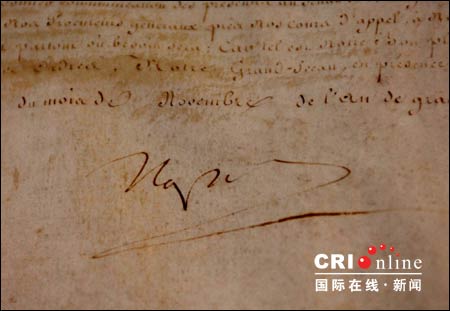 communication des présentes au
Nos Procureurs généraux près Nos cours d'appel, à
partout où besoin sera: Car tel est Notre Bon pl
Notre Grand-Sceau, en présence
du mois de Novembre de l'An de gra
Nap
CRI Online
国际在线·新闻